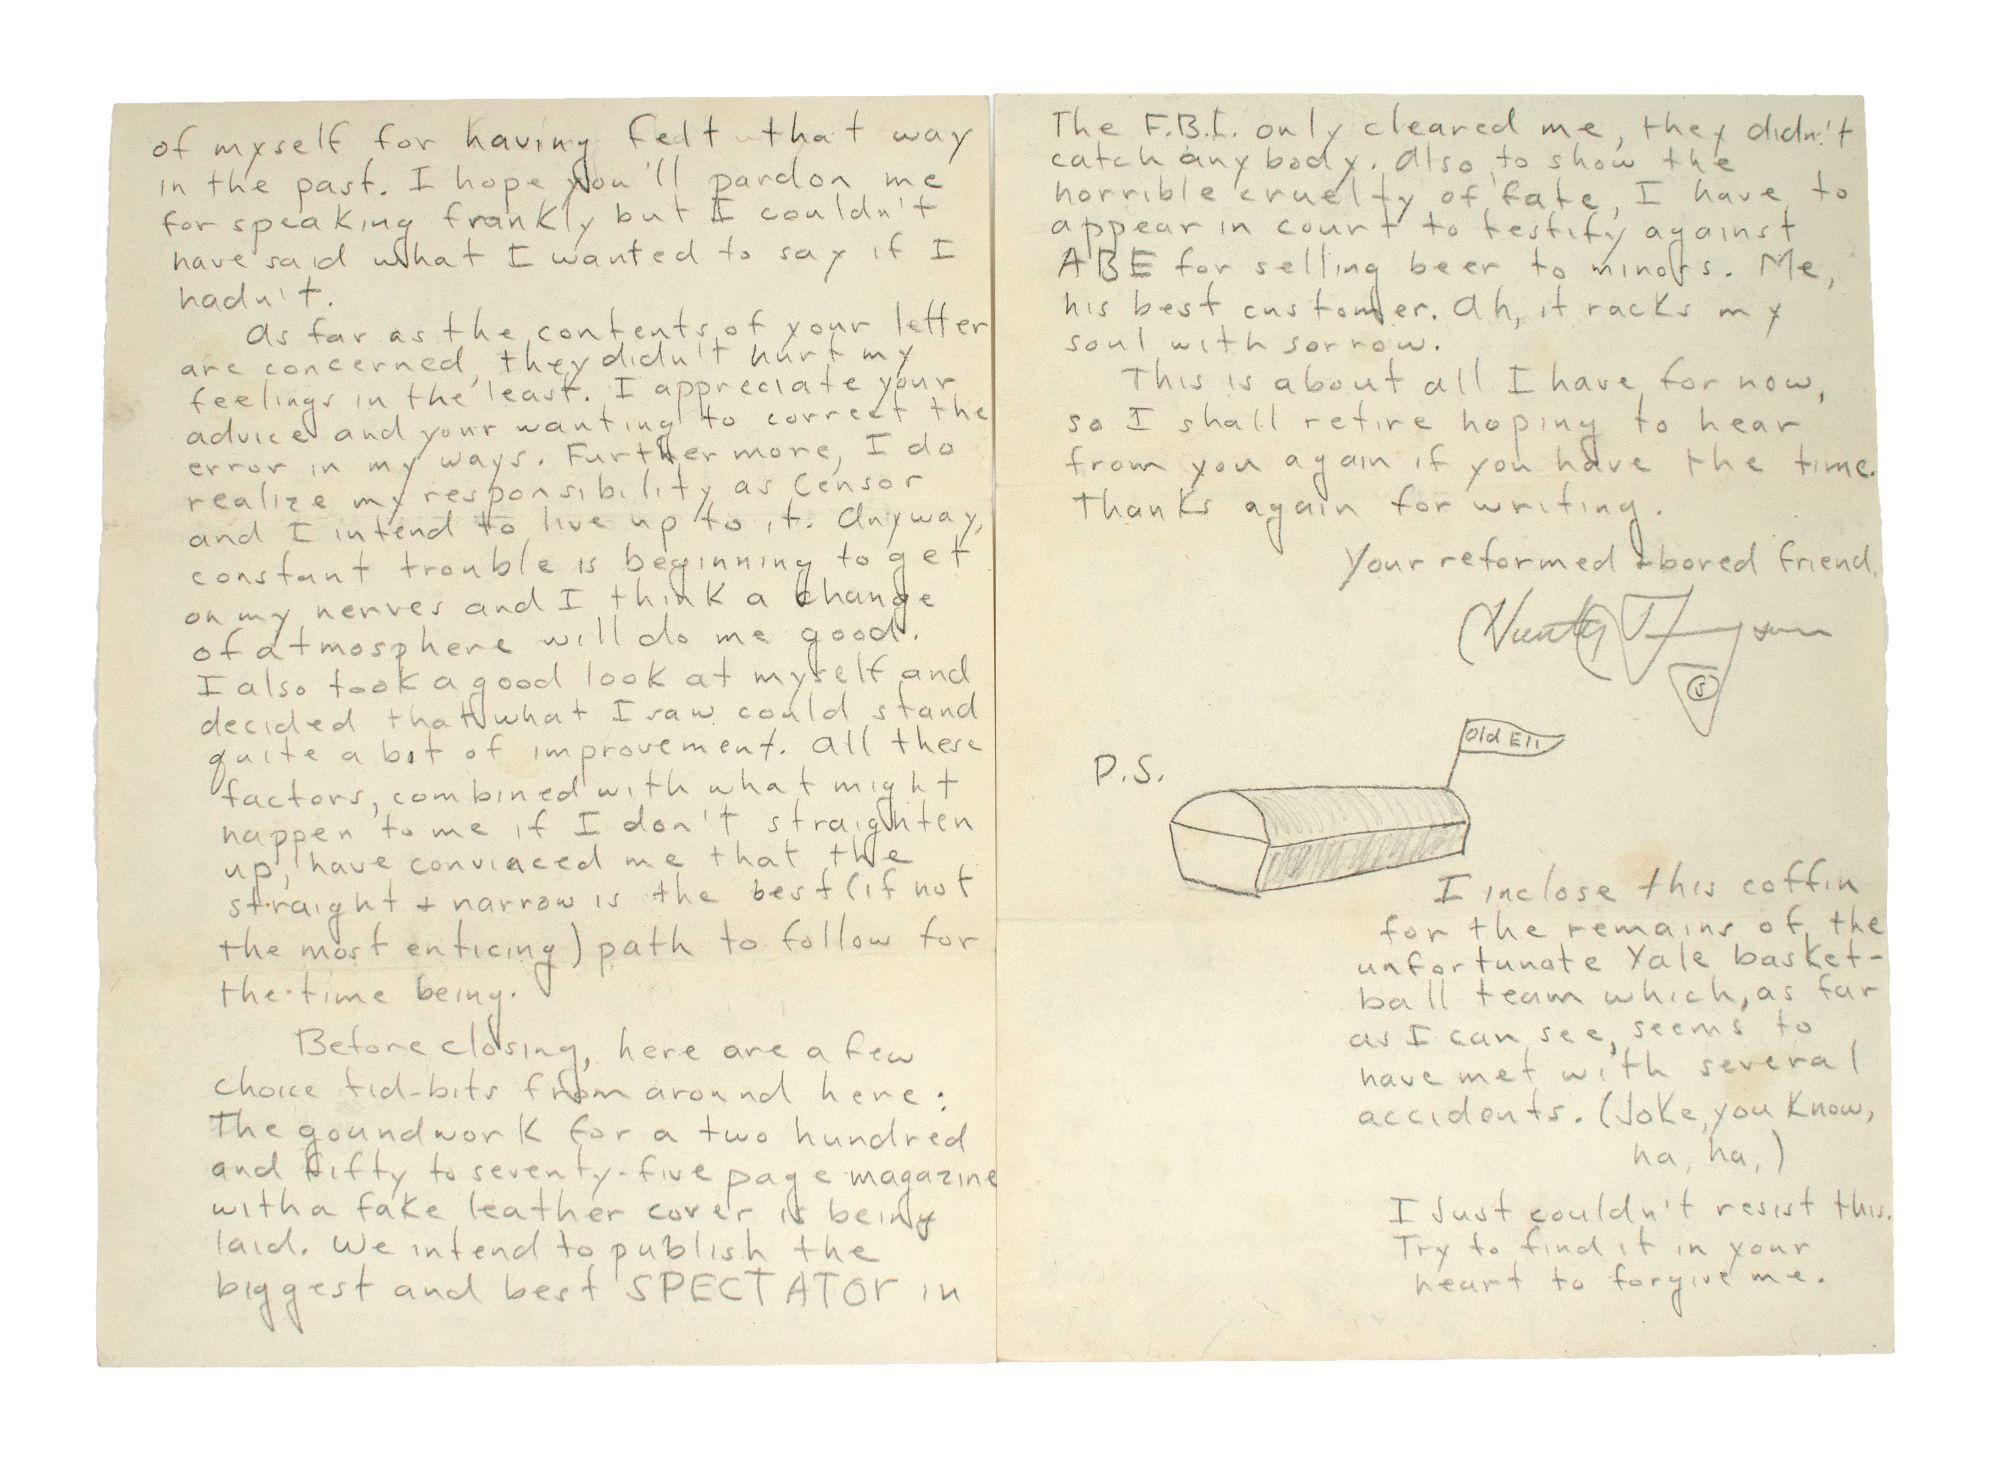 of myself for having fedt that way
in the past. I hope you'll pardon me
for speaking frankly but I couldn't
have said what I wanted to say if I
hadn't.
As far as the contents of your letter
are concerned, they didn't hurt my
feelings in the least. I appreciate your
advice and your wanting to correct the
error in my ways. Furthermore, I do
realize my responsibility as Censor
and I intend to live up to it. Anyway,
constant trouble is beginning to get
on my nerves and I think a change
of atmosphere will do me good.
I also took a good look at myself and
decided that what I saw could stand
quite a bit of improvement. All these
factors, combined with what might
happen to me if I don't straighten
up, have convinced me that the
straight + narrow is the best (if not
the most enticing) path to follow for
the time being.
Before closing, here are a few
choice tid-bits from around here:
The goundwork for a two hundred
and fifty to seventy-five page magazine
with a fake leather cover is being
laid. We intend to publish the
biggest and best SPECTATOr in
The F.B.I. only cleared me, they didn't
catch anybody. Also, to show the
horrible cruelty of fate, I have to
appear in court to testify against
ABE for selling beer to minors. Me,
his best customer. Ah, it racks my
soul with sorrow.
This is about all I have for now,
so I shall retire hoping to hear
from you again if you have the time.
Thanks again for writing.
Your reformed + bored friend,
Hunter Thompson
5
Old Eli
P.S.
I inclose this coffin
for the remains of the
unfortunate Yale basket-
ball team which, as far
as I can see, seems to
have met with several
accidents. (Joke, you know,
ha, ha,)
I Just couldn't resist this.
Try to find it in your
heart to forgive me.